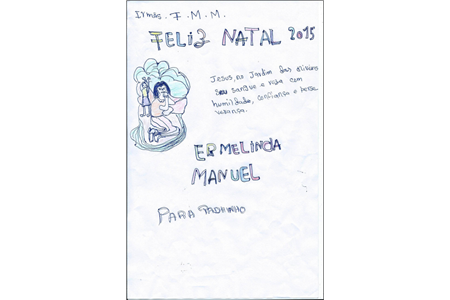 Irmãs. F. M. M.
FELIZ NATAL 2015
Jesus, no Jardim das oliveiras
seu sangue e reza com
humildade, confiança e perse
verança.
ERMELINDA
MANUEL
PARA PADRINHO